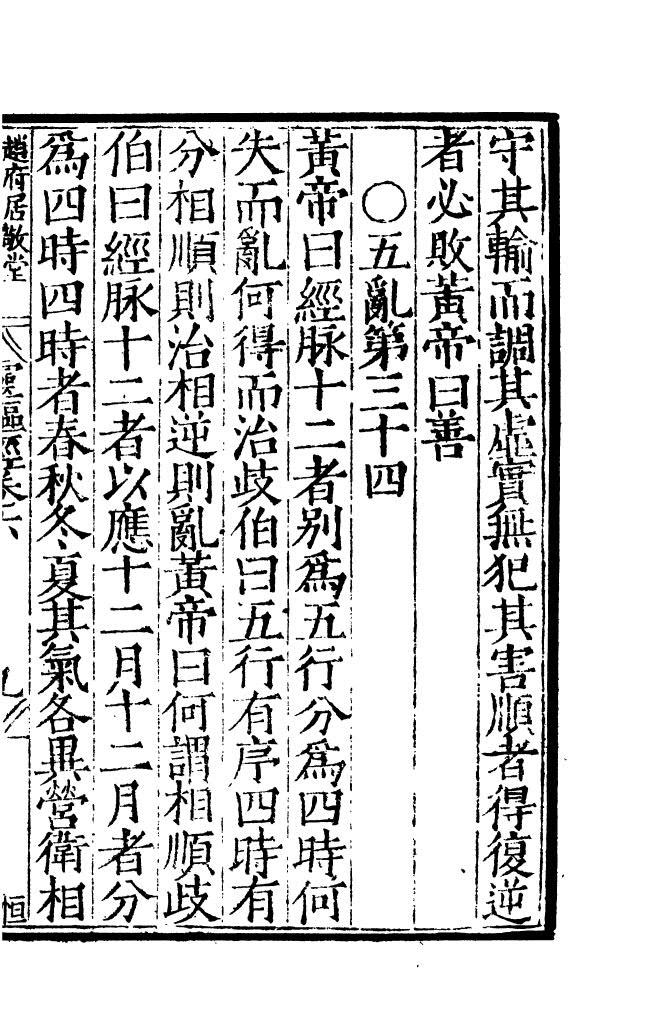 守其輸而調其虛實無犯其害順者得復逆
者必敗黃帝曰善
○五亂第三十四
黃帝曰經脉十二者別爲五行分爲四時何
失而亂何得而治歧伯曰五行有序四時有
分相順則治相逆則亂黃帝曰何謂相順歧
伯曰經脉十二者以應十二月十二月者分
爲四時四時者春秋冬夏其氣各異營衛相
趙府居敬堂
恒